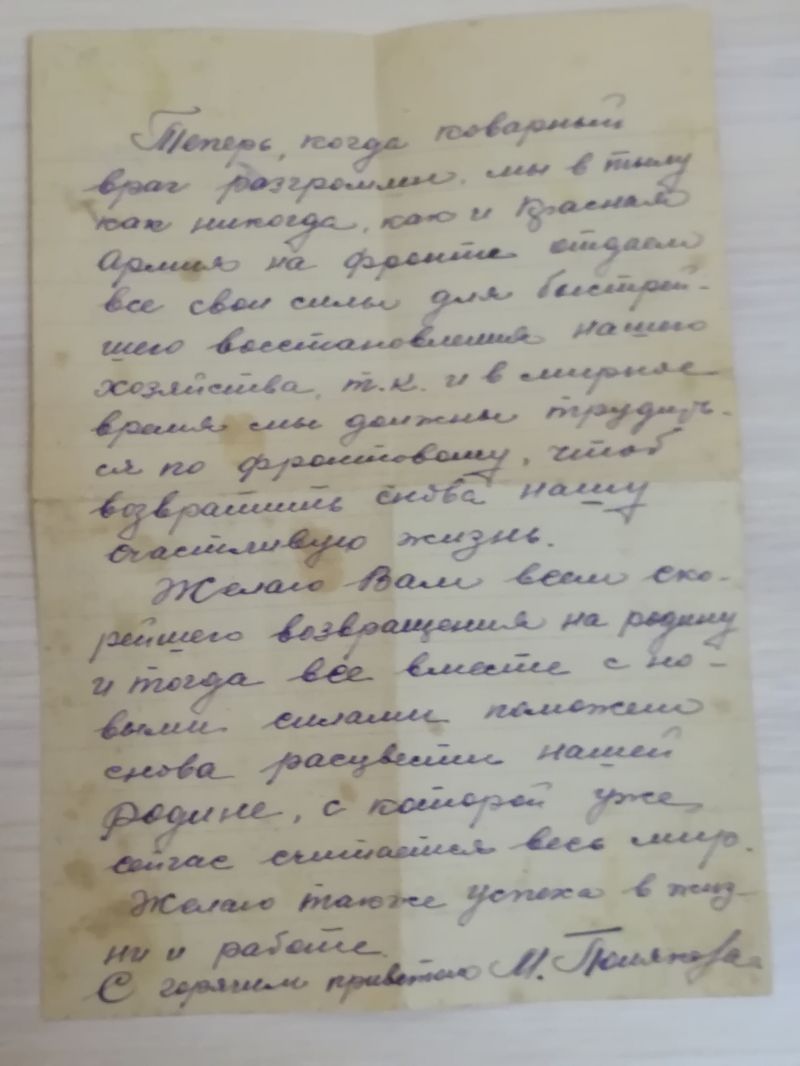 Теперь, когда коварный
враг разгромлен, мы в тылу
как никогда, как и Красная
Армия на фронте отдаем
все свои силы для быстрей-
шего восстановления нашего
хозяйства, т.к. и в мирное
время мы должны трудить-
ся по фронтовому, чтоб
возвратить снова нашу
счастливую жизнь.
Желаю Вам всем ско-
рейшего возвращения на родину
и тогда все вместе с но-
выми силами поможем
снова расцвести нашей
родине, с которой уже
сейчас считается весь мир.
Желаю также успеха в жиз-
ни и работе.
С горячим приветом М.